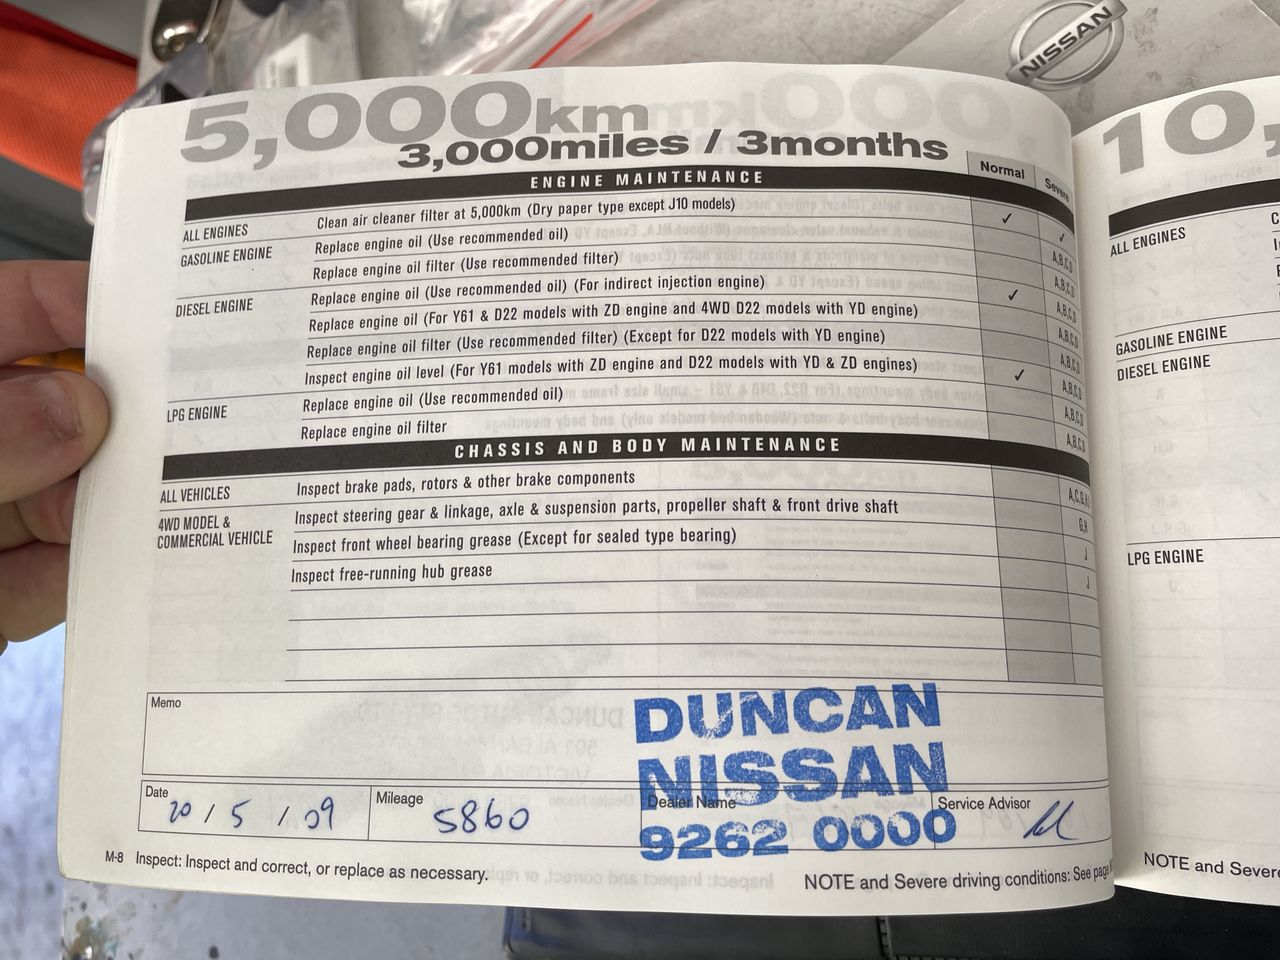 NISSAN
5,000km
3,000miles / 3months
Normal Severe
ENGINE MAINTENANCE
ALL ENGINES Clean air cleaner filter at 5,000km (Dry paper type except J10 models) ✓ ✓
GASOLINE ENGINE Replace engine oil (Use recommended oil) A,B,C,D
Replace engine oil filter (Use recommended filter) A,B,C,D
DIESEL ENGINE Replace engine oil (Use recommended oil) (For indirect injection engine) ✓ A,B,C,D
Replace engine oil (For Y61 & D22 models with ZD engine and 4WD D22 models with YD engine) A,B,C,D
Replace engine oil filter (Use recommended filter) (Except for D22 models with YD engine) A,B,C,D
Inspect engine oil level (For Y61 models with ZD engine and D22 models with YD & ZD engines) ✓ A,B,C,D
LPG ENGINE Replace engine oil (Use recommended oil) A,B,C,D
Replace engine oil filter A,B,C,D
CHASSIS AND BODY MAINTENANCE
ALL VEHICLES Inspect brake pads, rotors & other brake components
4WD MODEL & COMMERCIAL VEHICLE Inspect steering gear & linkage, axle & suspension parts, propeller shaft & front drive shaft G,H
Inspect front wheel bearing grease (Except for sealed type bearing) J
Inspect free-running hub grease J
Memo
DUNCAN
NISSAN
9262 0000
Date 20 / 5 / 09
Mileage 5860
Dealer Name
Service Advisor
M-8 Inspect: Inspect and correct, or replace as necessary.
NOTE and Severe driving conditions: See page
10,
ALL ENGINES
GASOLINE ENGINE
DIESEL ENGINE
LPG ENGINE
NOTE and Severe